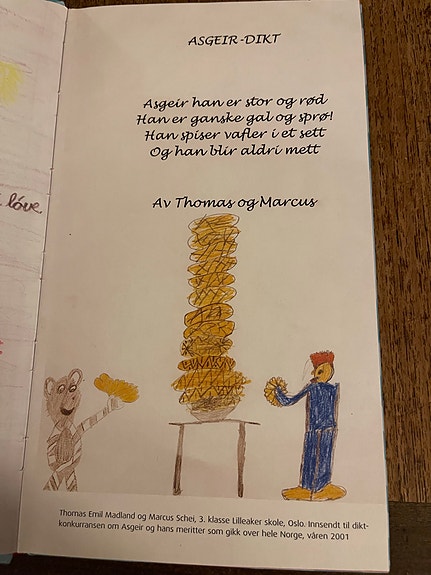 ASGEIR-DIKT
Asgeir han er stor og rød
Han er ganske gal og sprø!
Han spiser vafler i et sett
Og han blir aldri mett
Av Thomas og Marcus
løve
Thomas Emil Madland og Marcus Schei, 3. klasse Lilleaker skole, Oslo. Innsendt til dikt-
konkurransen om Asgeir og hans meritter som gikk over hele Norge, våren 2001